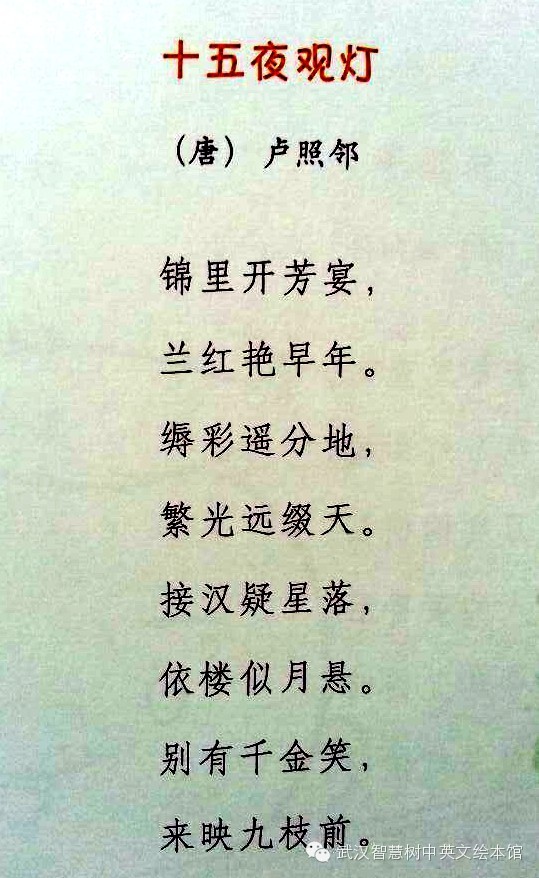 十五夜观灯
（唐） 卢照邻
锦里开芳宴，
兰红艳早年。
缛彩遥分地，
繁光远缀天。
接汉疑星落，
依楼似月悬。
别有千金笑，
来映九枝前。
武汉智慧树中英文绘本馆